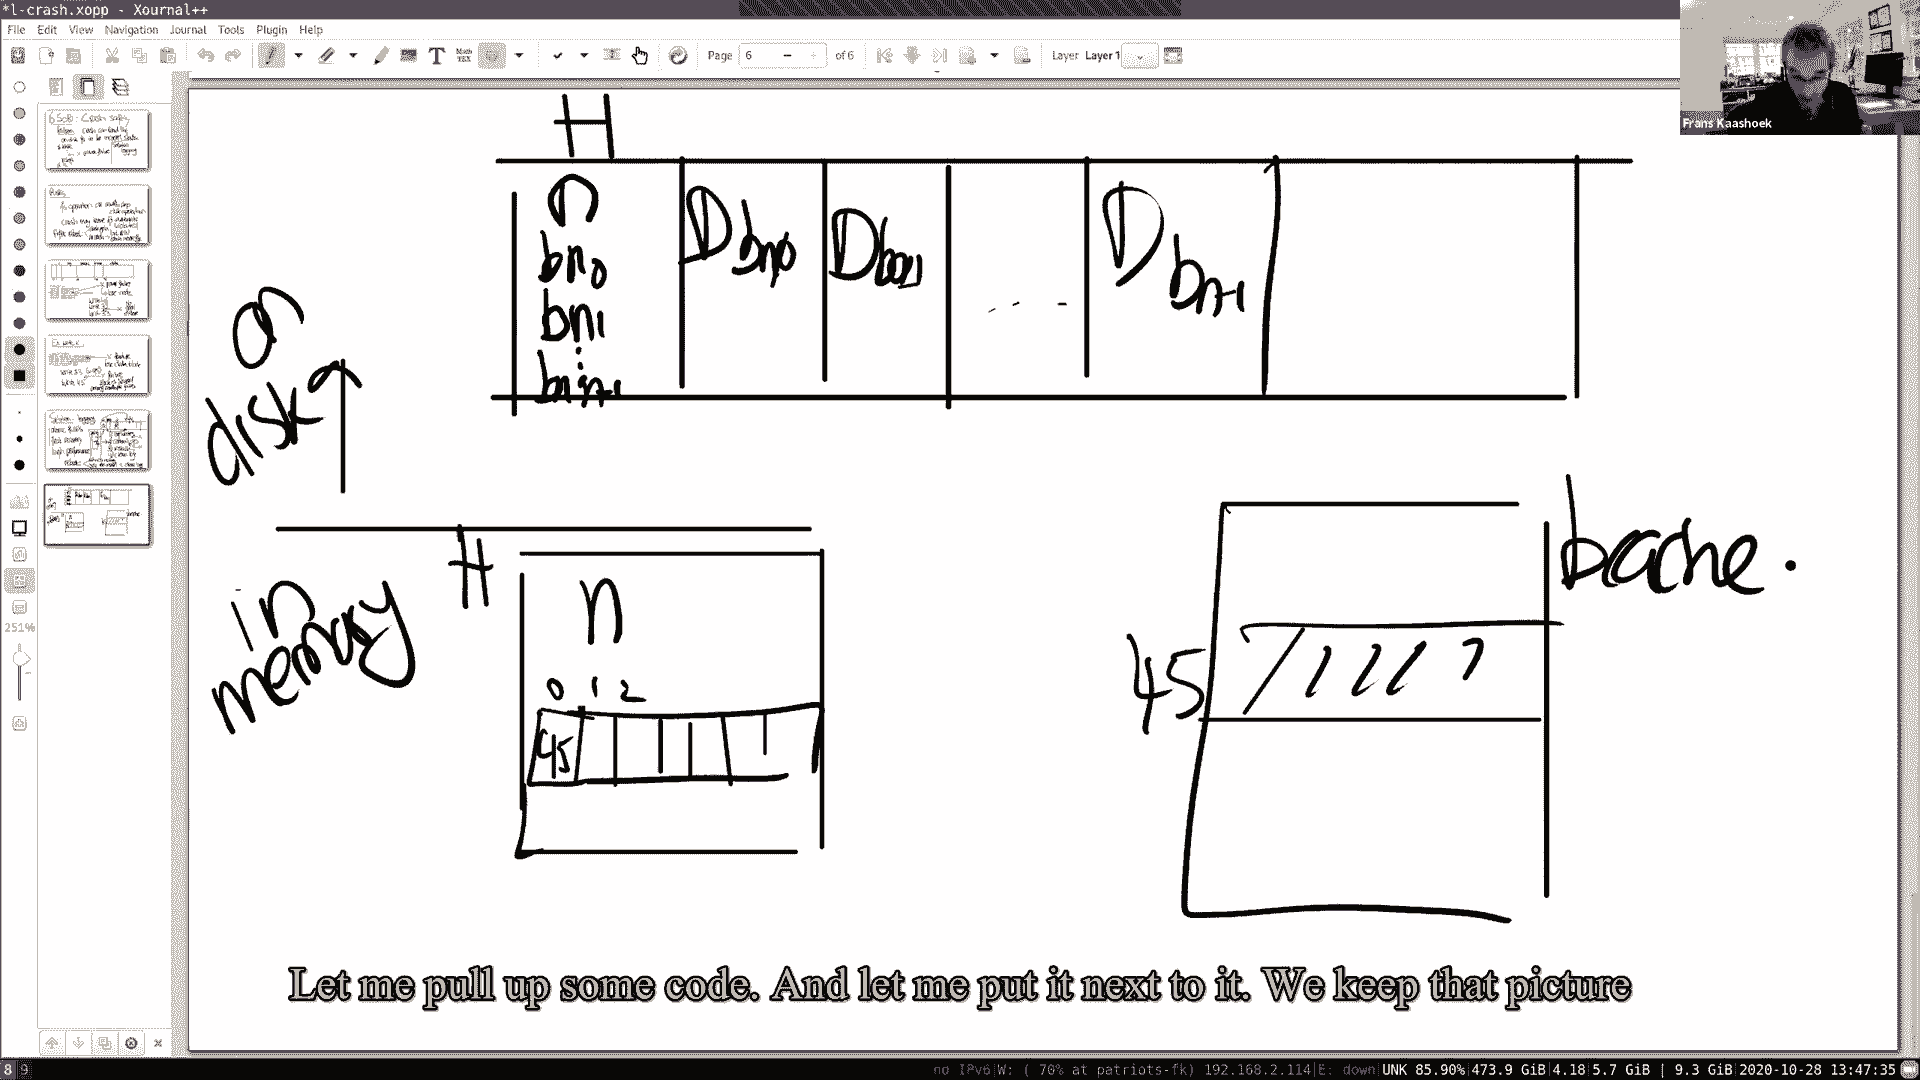 *l-crash.xopp - Xournal++
File Edit View Navigation Journal Tools Plugin Help
Page 6 of 6 Layer Layer 1
Frans Kaashoek
H
n
bn0
bn1
D bn0
D
D bn-1
on
disk
251%
in
memory
H
n
0 1 2
45
45
bcache.
Let me pull up some code. And let me put it next to it. We keep that picture
8 9
no IPv6 W: ( 70% at patriots-fk) 192.168.2.114 E: down UNK 85.90% 473.9 GiB 4.18 5.7 GiB | 9.3 GiB 2020-10-28 13:47:35